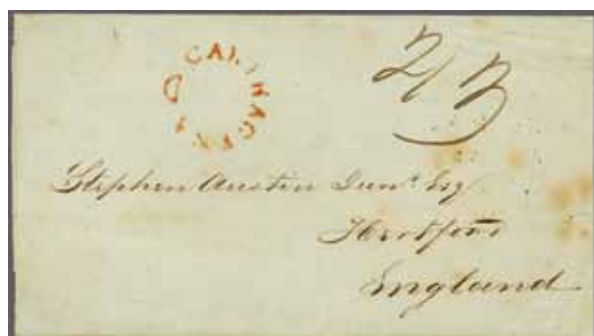 CARTHAGENA
2/3
Stephen Austin Junr. Esq
Hertford
England